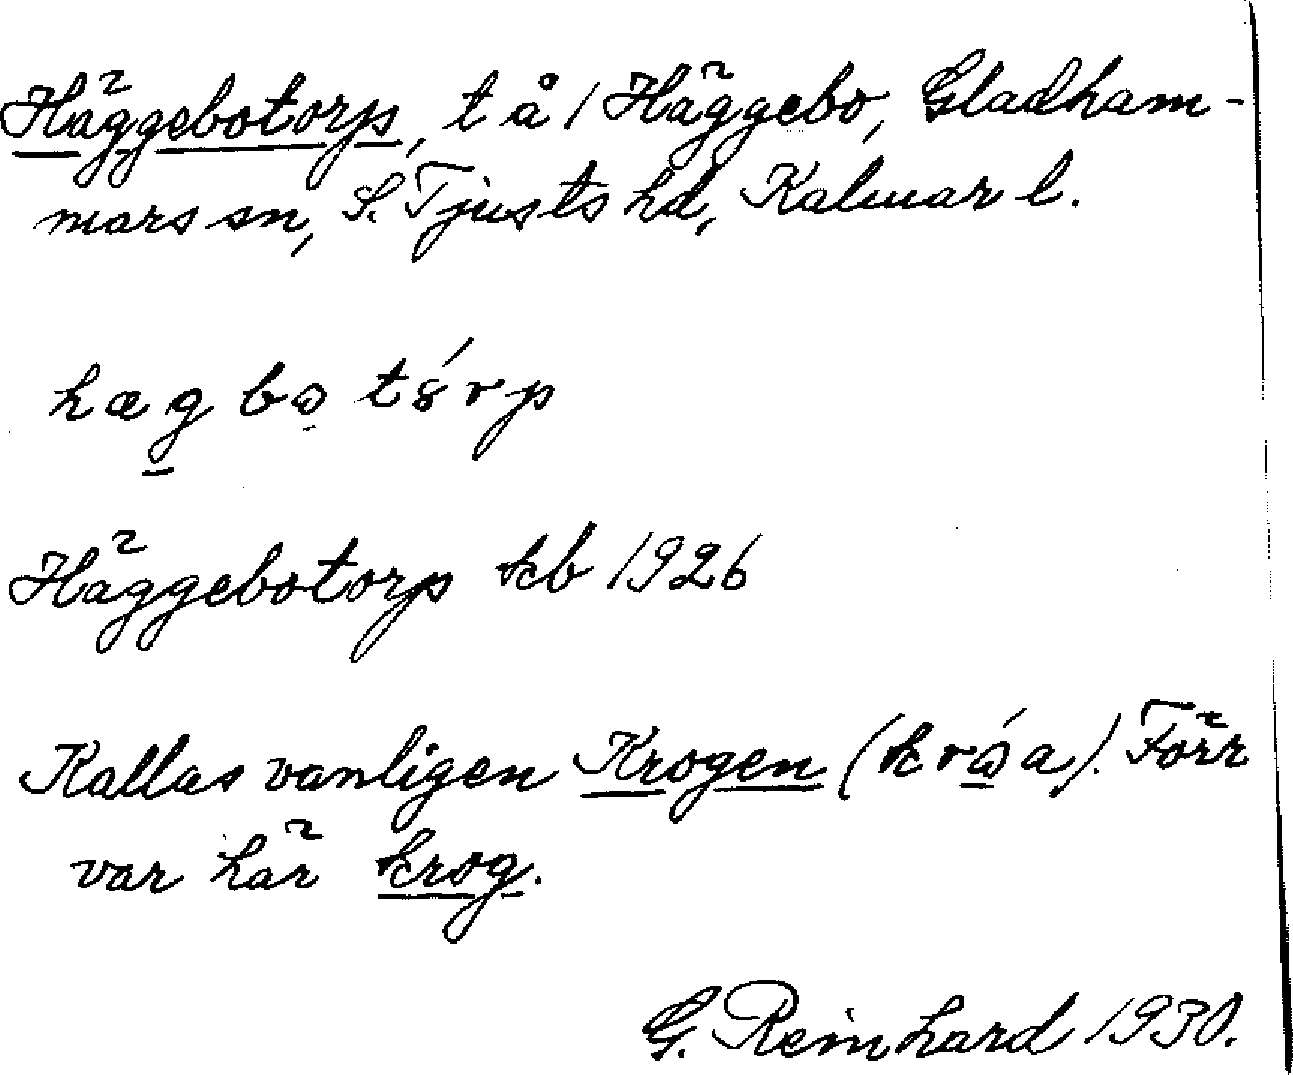 Häggebotorp, t å 1 Häggebo, Gladham-
mars sn, S. Tjusts hd, Kalmar l.
hægbo tórp
Häggebotorp kb 1926
Kallas vanligen Krogen (króa). Förr
var här krog.
G. Reinhard 1930.